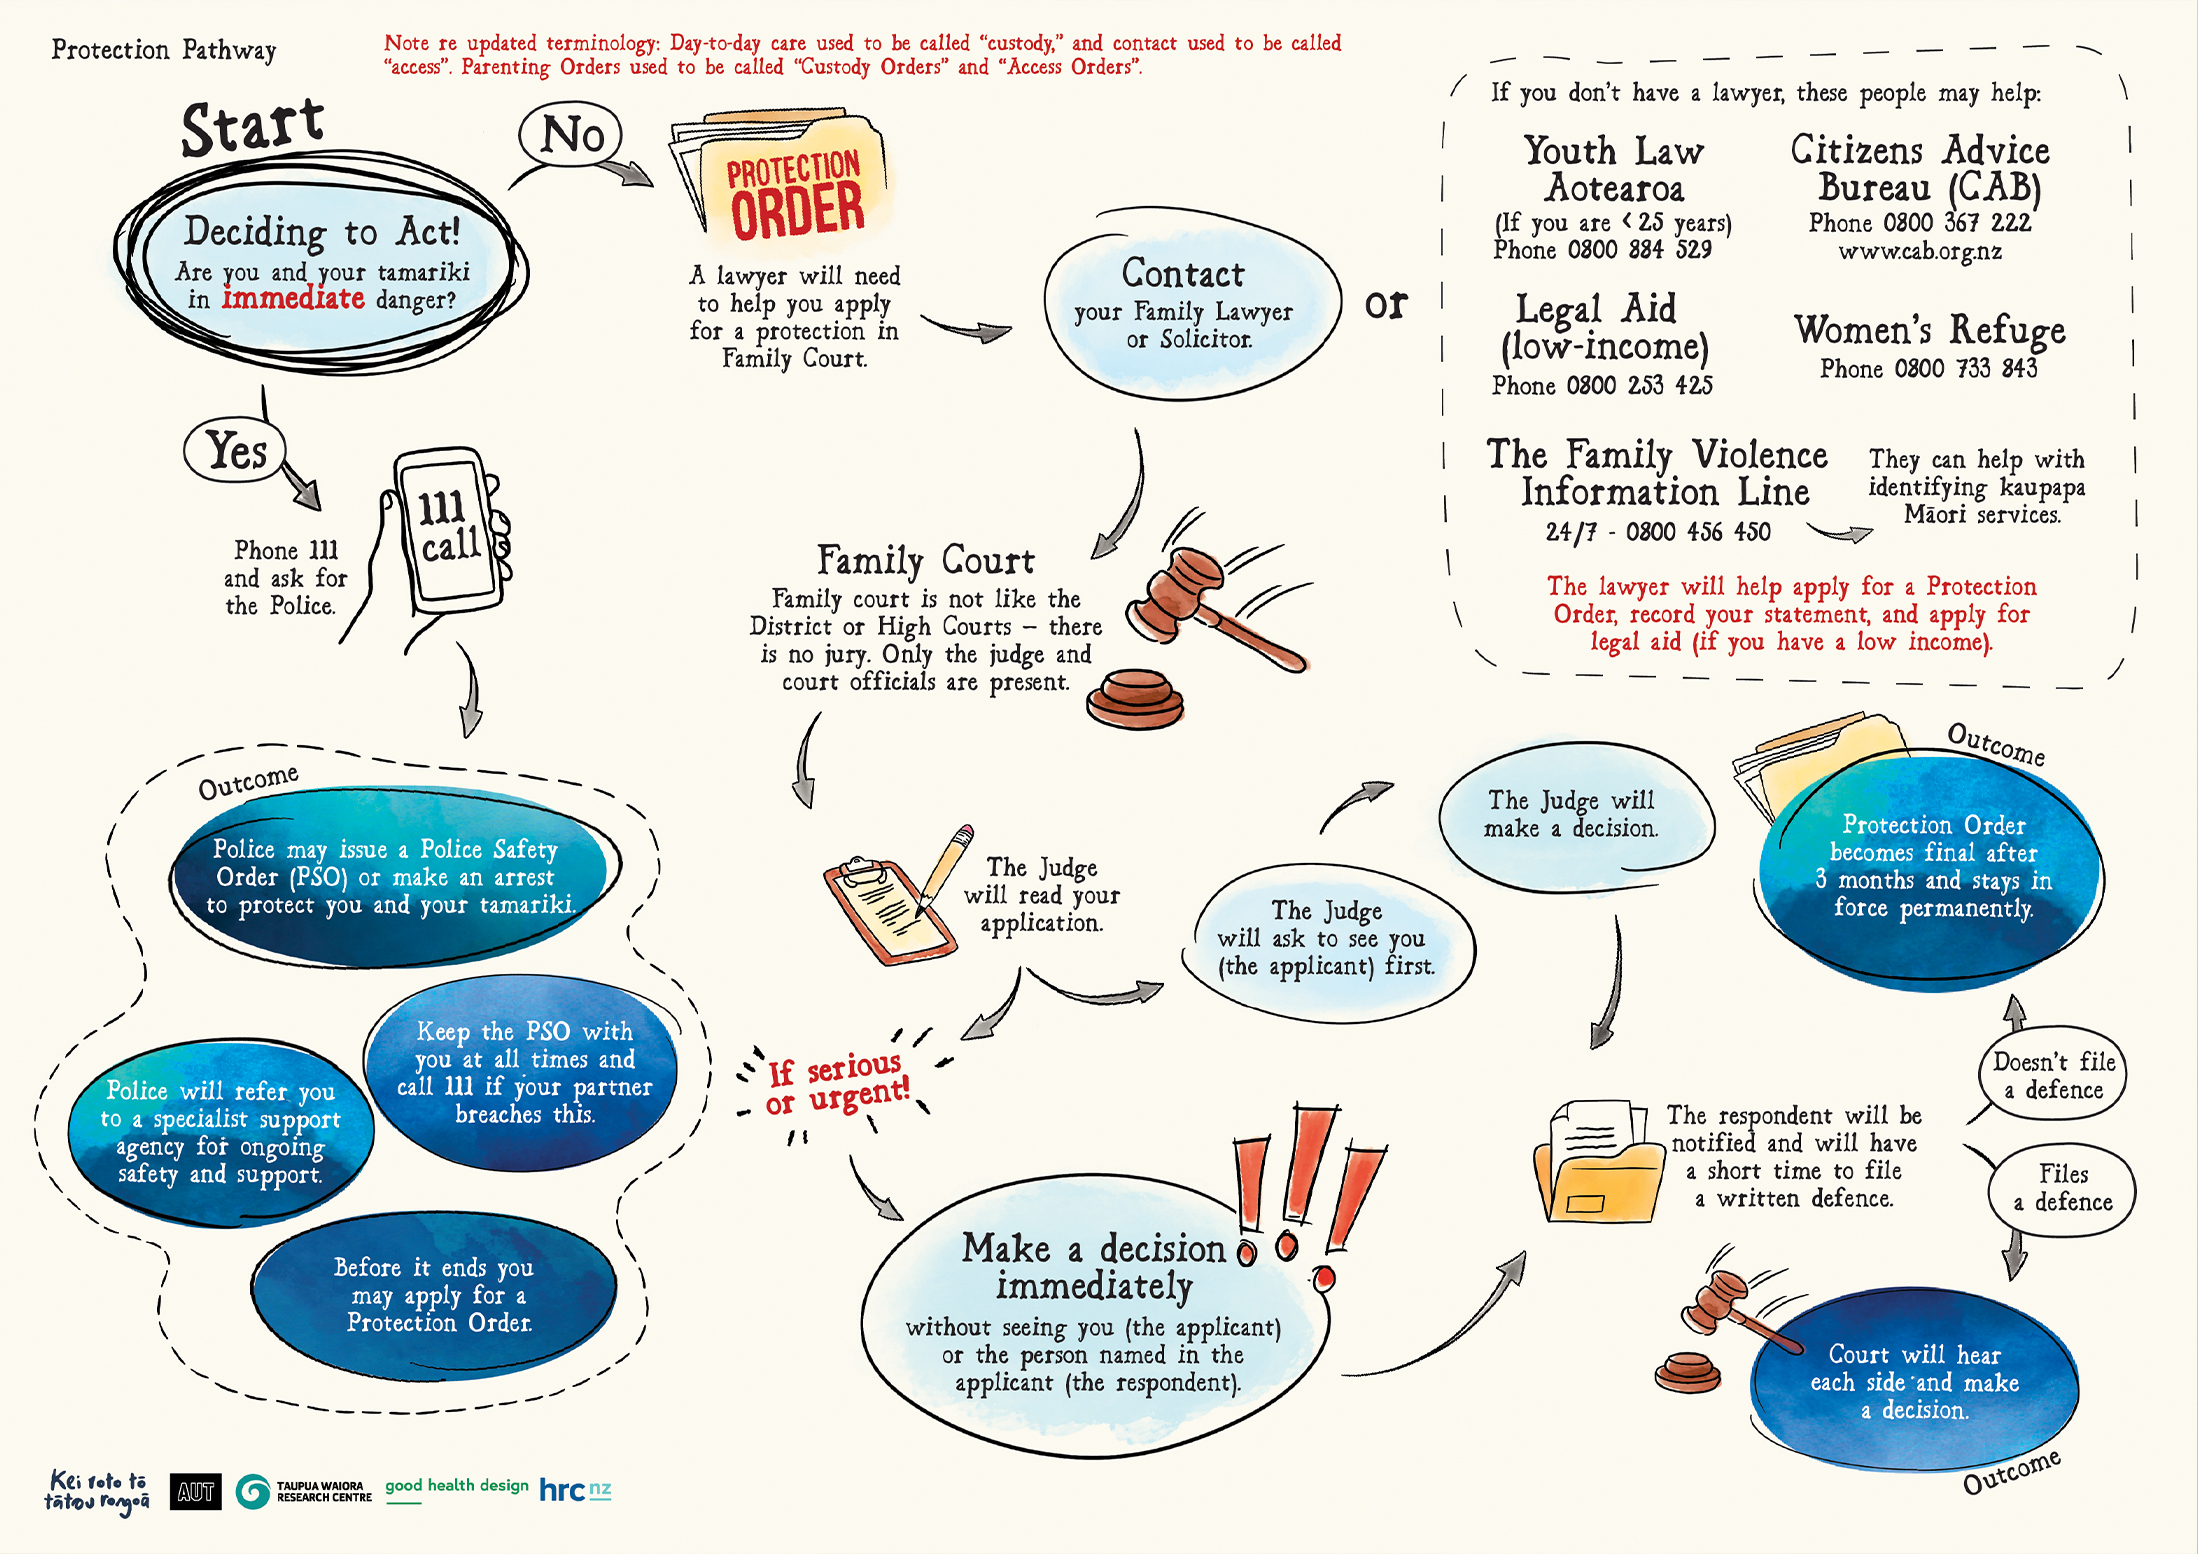 Protection Pathway
Note re updated terminology: Day-to-day care used to be called “custody,” and contact used to be called
“access”. Parenting Orders used to be called “Custody Orders” and “Access Orders”.
Start
Deciding to Act!
Are you and your tamariki
in immediate danger?
No
PROTECTION
ORDER
A lawyer will need
to help you apply
for a protection in
Family Court.
Contact
your Family Lawyer
or Solicitor.
or
If you don’t have a lawyer, these people may help:
Youth Law
Aotearoa
(If you are < 25 years)
Phone 0800 884 529
Citizens Advice
Bureau (CAB)
Phone 0800 367 222
www.cab.org.nz
Legal Aid
(low-income)
Phone 0800 253 425
Women’s Refuge
Phone 0800 733 843
The Family Violence
Information Line
24/7 - 0800 456 450
They can help with
identifying kaupapa
Māori services.
The lawyer will help apply for a Protection
Order, record your statement, and apply for
legal aid (if you have a low income).
Yes
111
call
Phone 111
and ask for
the Police.
Outcome
Police may issue a Police Safety
Order (PSO) or make an arrest
to protect you and your tamariki.
Keep the PSO with
you at all times and
call 111 if your partner
breaches this.
Police will refer you
to a specialist support
agency for ongoing
safety and support.
Before it ends you
may apply for a
Protection Order.
Family Court
Family court is not like the
District or High Courts – there
is no jury. Only the judge and
court officials are present.
The Judge
will read your
application.
The Judge
will ask to see you
(the applicant) first.
The Judge will
make a decision.
If serious
or urgent!
Make a decision
immediately
without seeing you (the applicant)
or the person named in the
applicant (the respondent).
The respondent will be
notified and will have
a short time to file
a written defence.
Doesn’t file
a defence
Files
a defence
Outcome
Protection Order
becomes final after
3 months and stays in
force permanently.
Court will hear
each side and make
a decision.
Outcome
Kei roto tō
tātou rongoā
AUT
TAUPUA WAIORA
RESEARCH CENTRE
good health design
hrc nz